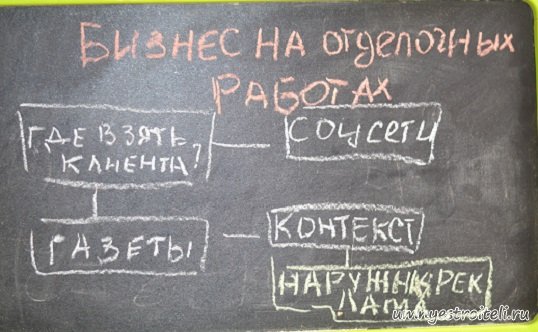 БИЗНЕС НА ОТДЕЛОЧНЫХ
РАБОТАХ
ГДЕ ВЗЯТЬ
КЛИЕНТА?
СОЦСЕТИ
ГАЗЕТЫ
КОНТЕКСТ
НАРУЖН РЕК
ЛАМА
umnyestroiteli.ru